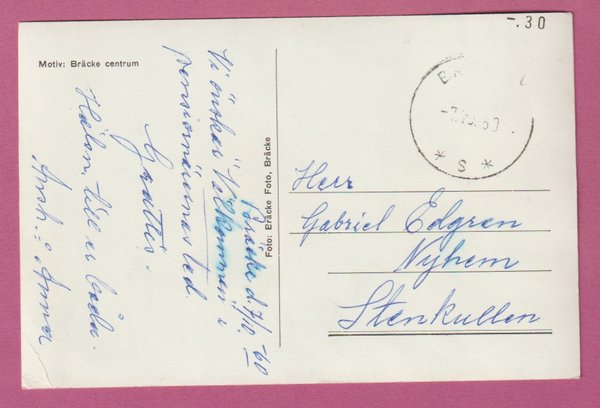 -.30
Motiv: Bräcke centrum
Bräcke d. 7/10 -60
Vi önskar Välkommen i
pensionärernas led.
Grattis.
Hälsn. till er båda.
Foto: Bräcke Foto, Bräcke
* S *
Herr
Gabriel Edgren
Nyhem
Stenkullen